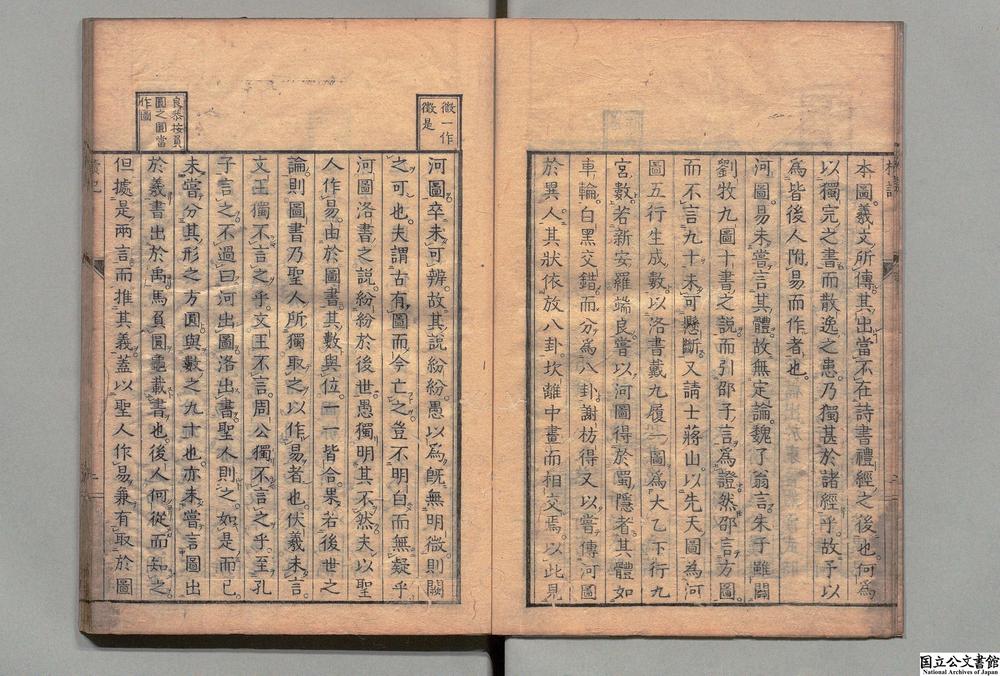 本圖羲文所傳其出當不在詩書禮經之後也何為
以獨完之書而散逸之患乃獨甚於諸經乎故予以
為皆後人附易而作者也
河圖易未嘗言其體故無定論魏了翁言朱子雖闢
劉牧九圖十書之說而引邵子言為證然邵言方圓
而不言九十未可懸斷又請士蔣山以先天圖為河
圖五行生成數以洛書戴九履一圖為大乙下行九
宮數若新安羅端良嘗以河圖得於蜀隱者其體如
車輪白黑交錯而分為八卦謝枋得又以嘗傳河圖
於異人其狀依放八卦坎離中畫而相交焉以此見
徵一作
徵是
河圖卒未可辨故其說紛紛愚以為既無明徵則闕
之可也夫謂古有圖而今亡之豈不明白而無疑乎
河圖洛書之說紛紛於後世愚獨明其不然夫以聖
人作易由於圖書其數與位一一皆合果若後世之
論則圖書乃聖人所獨取之以作易者也伏羲未言
文王獨不言之乎文王不言周公獨不言之乎至孔
子言之不過曰河出圖洛出書聖人則之如是而已
良恭按員
圓之圓當
作圖
未嘗分其形之方圓與數之九十也亦未嘗言圖出
於羲書出於禹馬負圓龜載書也後人何從而知之
但據是兩言而推其義蓋以聖人作易兼有取於圖
国立公文書館
National Archives of Japan